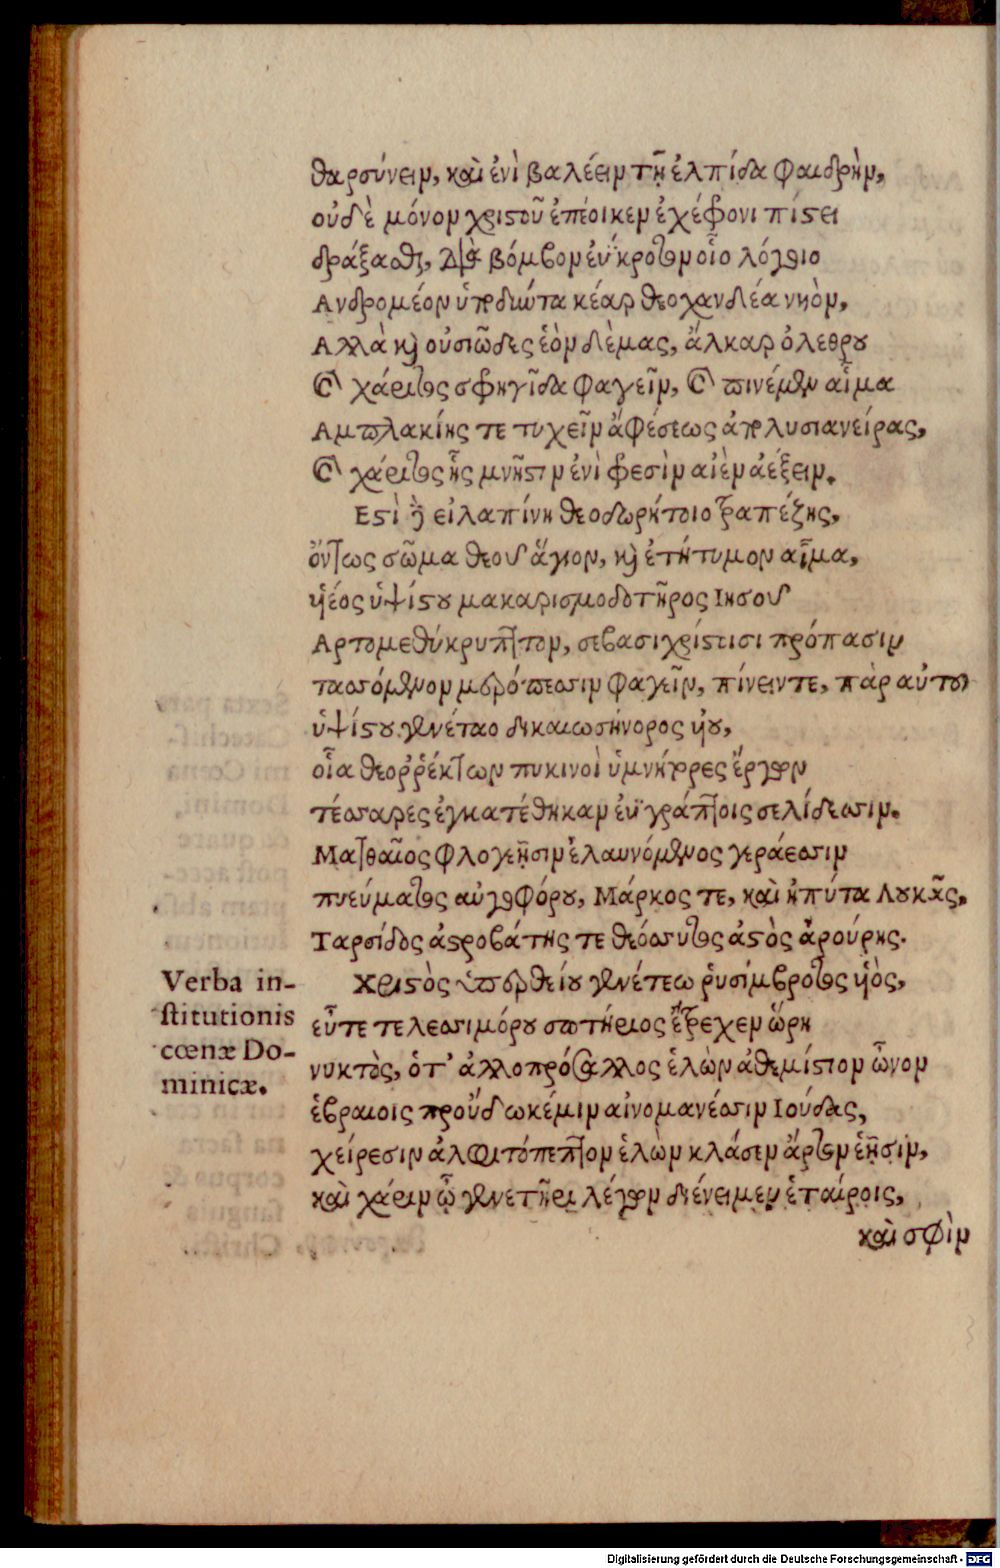 θαρσύνειν, καὶ ἐνὶ βαλέειν τῇ ἐλπίδα φαιδρὴν,
οὐδὲ μόνον χριστοῦ ἐπέοικεν ἐχέφρονι πίστει
δράξασθαι, διὰ βόμβον ἐϋκρότου οἷο λόγοιο
Ανδρομέον
κέαρ θεοχανδέα νηὸν,
Αλλὰ καὶ οὐσιῶδες ἑὸν δέμας, ἄλκαρ ὀλέθρου
Εἰ χάριτος σφρηγῖδα φαγεῖν, Εἰ πινέμεν αἷμα
Αμπλακίης τε τυχεῖν ἀφέσεως ἀπὸ λυσιανείρας,
Εἰ χάριτος ἧς μνῆστιν ἐνὶ φρεσὶν αἰὲν ἀέξειν.
Εστὶ γὰρ εἰλαπίνη θεοδωρήτοιο τραπέζης,
ὄντως σῶμα θεοῦ ἅγιον, καὶ ἐτήτυμον αἷμα,
ὑέος ὑψίστου μακαρισμοδοτῆρος Ιησοῦ
Αρτομεθύκρυπτον, σεβασιχρίστισι πρόπασιν
τασσόμενον μερόπεσσιν φαγεῖν, πίνειν τε, παρ αὐτοῦ
ὑψίστου γενέταο δικαιωσήνορος ὑοῦ,
οἷα θεορῥέκτων πυκινοὶ ὑμνήτορες ἔργων
τέσσαρες ἐγκατέθηκαν ἐϋγράπτοις σελίδεσσιν.
Ματθαῖος φλογεῇσιν ἐλαυνόμενος γεράεσσιν
πνεύματος αὐγοφόρου, Μάρκος τε, καὶ ἠπύτα Λουκᾶς,
Ταρσίδος ἀστροβάτης τε θεόσσυτος ἀστὸς ἀρούρης.
Verba in-
stitutionis
cœnæ Do-
minicæ.
Χριστὸς ὑπερθείου γενέτεω ῥυσίμβροτος ὑὸς,
εὖτε τελεσσιμόρου σωτήριος ἔτρεχεν ὥρη
νυκτὸς, ὅτ' ἀλλοπρόσαλλος ἑλὼν ἀθεμίστον ὦνον
ἑβραιοις προὔδωκέ μιν αἰνομανέσσιν Ιούδας,
χείρεσιν ἀλφιτόπεπτον ἑλὼν κλάσεν ἄρτον ἑῇσιν,
καὶ χάριν ᾧ γενετῆρι λέγων διένειμεν ἑταίροις,
καὶ σφὶν
Digitalisierung gefördert durch die Deutsche Forschungsgemeinschaft - DFG